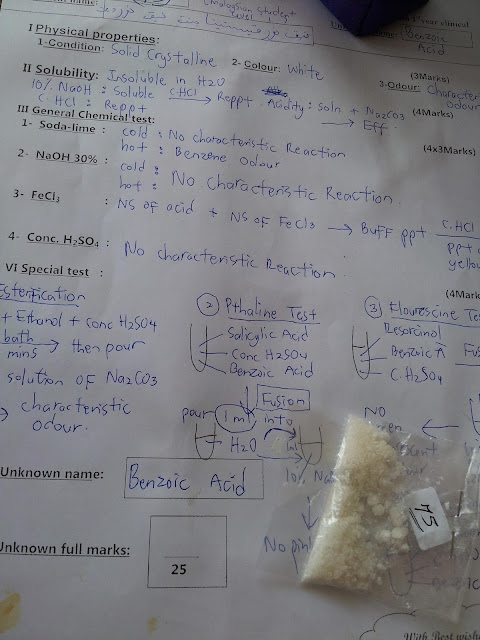 Malaysian Student
1st year clinical
Benzoic
Acid
I Physical properties:
1-Condition: Solid Crystalline 2- Colour: White (3Marks)
3-Odour: Character
odour
II Solubility: Insoluble in H2O
10% NaOH : Soluble C.HCl → Reppt . Acidity: soln + Na2CO3 (4Marks)
C.HCl : Reppt → Eff.
III General Chemical test:
1- Soda-lime : cold : No characteristic Reaction (4x3Marks)
hot : Benzene Odour
2- NaOH 30% : cold : No characteristic Reaction.
hot :
3- FeCl3 : NS of acid + NS of FeCl3 → Buff ppt C.HCl
ppt
yellow
4- Conc. H2SO4 : No characteristic Reaction.
VI Special test : (4Mark
Esterification
+ Ethanol + conc H2SO4
bath
mins → then pour
solution of Na2CO3
→ characteristic
odour.
② Pthaline Test
Salicylic Acid
Conc H2SO4
Benzoic Acid
Fusion
pour 1 ml into
H2O
10% Na
No pin
③ Flourescine Te
Resorcinol
Benzoic A
C.H2SO4
Fus
NO
75
Unknown name: Benzoic Acid
Unknown full marks:
25
With Best wish